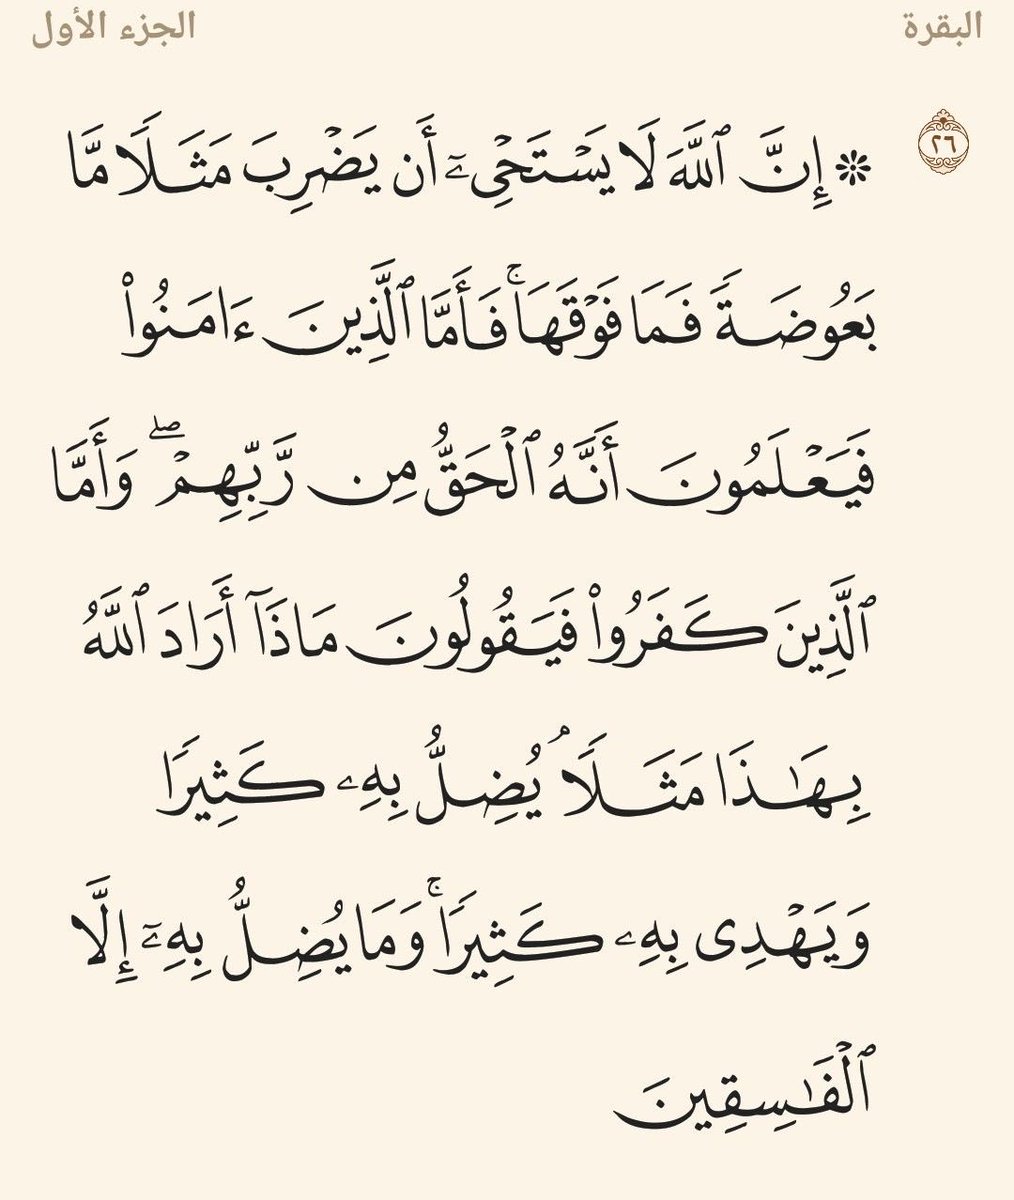 البقرة الجزء الأول
٢٦
۞ إِنَّ ٱللَّهَ لَا يَسۡتَحۡيِۦٓ أَن يَضۡرِبَ مَثَلٗا مَّا
بَعُوضَةٗ فَمَا فَوۡقَهَاۚ فَأَمَّا ٱلَّذِينَ ءَامَنُواْ
فَيَعۡلَمُونَ أَنَّهُ ٱلۡحَقُّ مِن رَّبِّهِمۡۖ وَأَمَّا
ٱلَّذِينَ كَفَرُواْ فَيَقُولُونَ مَاذَآ أَرَادَ ٱللَّهُ
بِهَٰذَا مَثَلٗاۘ يُضِلُّ بِهِۦ كَثِيرٗا
وَيَهۡدِي بِهِۦ كَثِيرٗاۚ وَمَا يُضِلُّ بِهِۦٓ إِلَّا
ٱلۡفَٰسِقِينَ